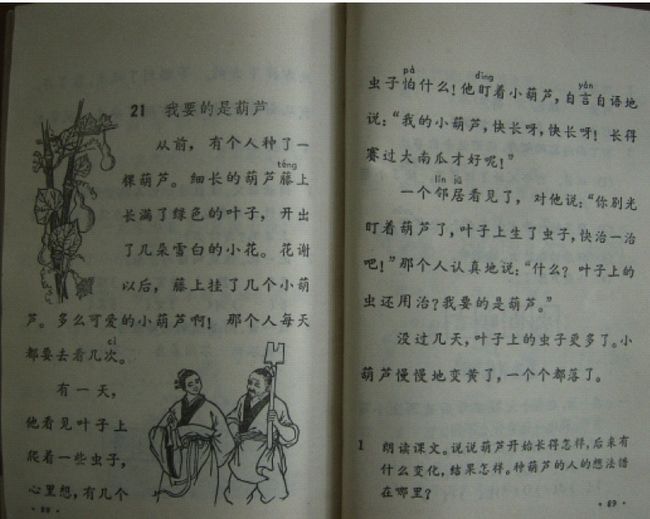 21 我要的是葫芦
从前，有个人种了一
téng
棵葫芦。细长的葫芦藤上
长满了绿色的叶子，开出
了几朵雪白的小花。花谢
以后，藤上挂了几个小葫
芦。多么可爱的小葫芦啊！那个人每天
cì
都要去看几次。
有一天，
他看见叶子上
爬着一些虫子，
心里想，有几个
·88·
pà dīng yán
虫子怕什么！他盯着小葫芦，自言自语地
说：“我的小葫芦，快长呀，快长呀！长得
赛过大南瓜才好呢！”
lín jū
一个邻居看见了，对他说：“你别光
盯着葫芦了，叶子上生了虫子，快治一治
吧！”那个人认真地说：“什么？叶子上的
虫还用治？我要的是葫芦。”
没过几天，叶子上的虫子更多了。小
葫芦慢慢地变黄了，一个个都落了。
1 朗读课文。说说葫芦开始长得怎样，后来有
什么变化，结果怎样。种葫芦的人的想法错
在哪里？
·89·